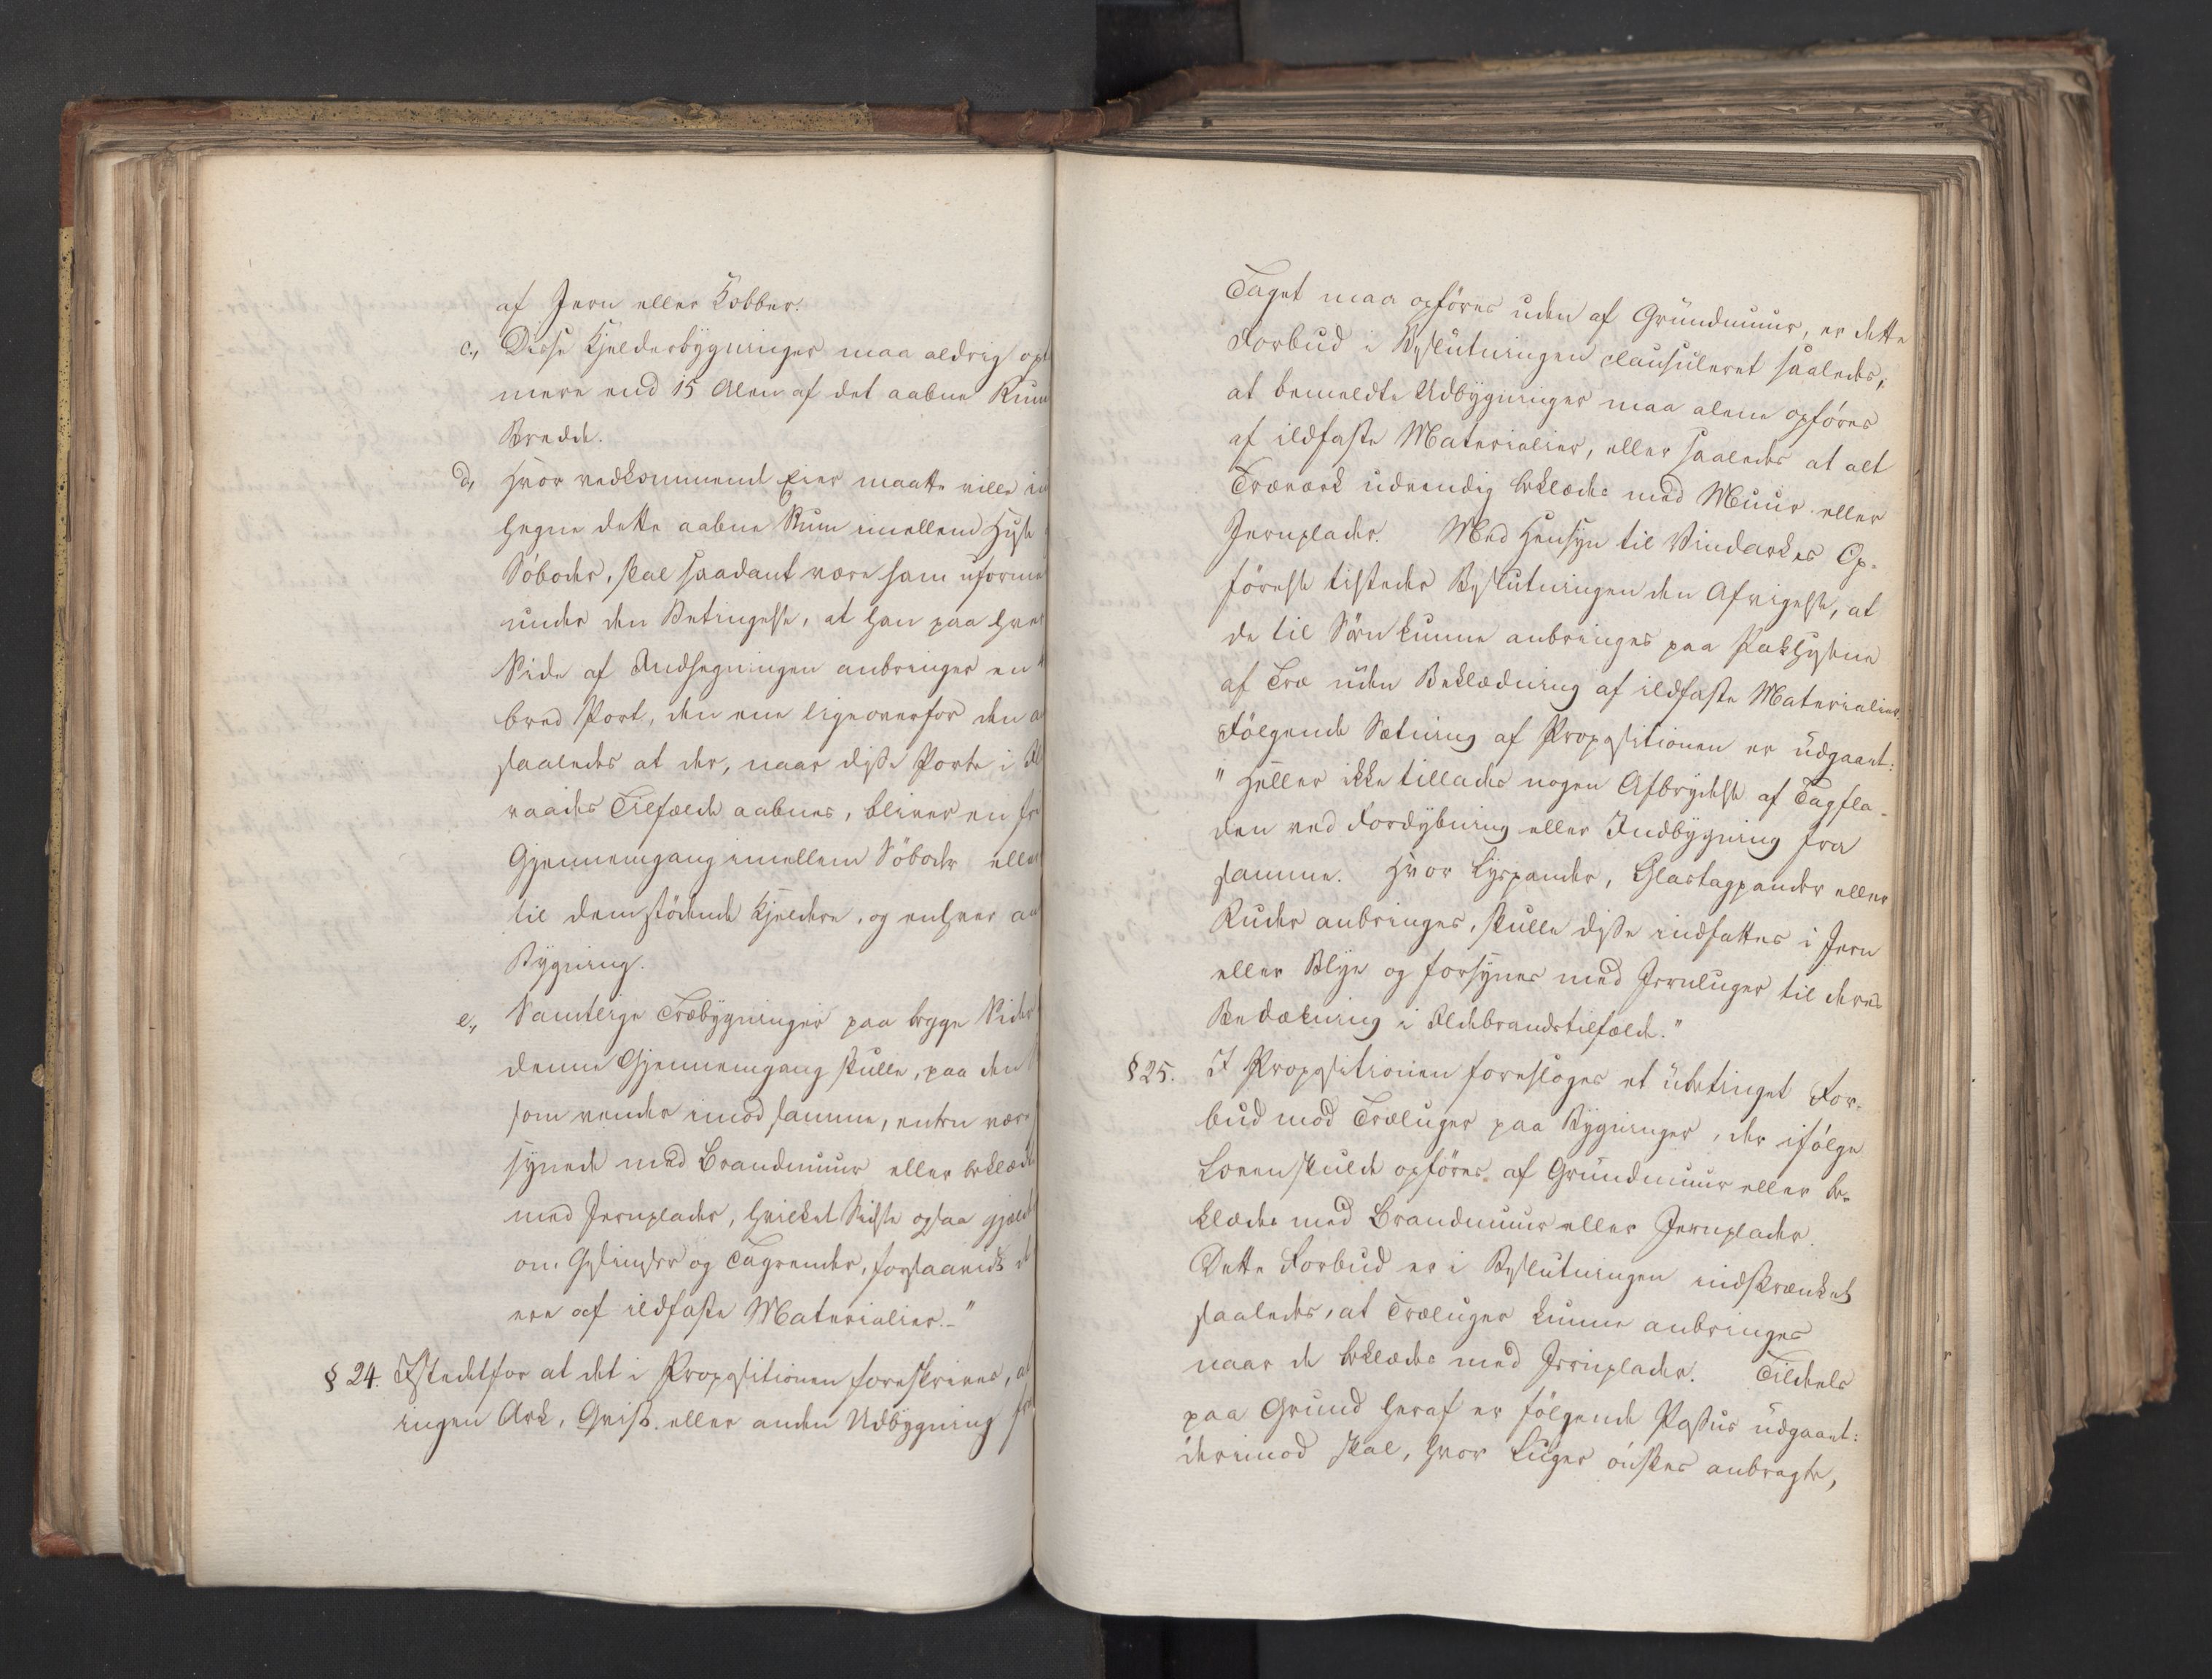 af Jern eller Kobber.
c., Disse Kjelderbygninger maa aldrig opt
mere end 15 Alen af det aabne Rum
Bredde.
d, Hvor vedkommende Eier maatte ville in
hegne dette aabne Rum imellem Hyse
Söboder, skal saadant være ham uforme
under den Betingelse, at han paa hver
Side af Indhegningen anbringer en
bred Port, den ene ligeoverfor den a
saaledes at der, naar disse Porte i Il
vaades Tilfælde aabnes, bliver en fr
Gjennemgang imellem Söboder eller
til dem stödende Kjeldere, og enhver an
Bygning.
e., Samtlige Træbygninger paa begge Sider
denne Gjennemgang skulle, paa den
som vender imod samme, enten være
synede med Brandmuur eller beklæde
med Jernplader, hvilket Sidste ogsaa gjælde
om Gesimser og Tagrender, forsaavidt
ere af ildfaste Materialier.-"
§ 24. Istedetfor at det i Propositionen foreskrives, at
ingen Ark, Qvist eller anden Udbygning fra
Taget maa opföres uden af Grundmuur, er dette
Forbud i Beslutningen clausuleret saaledes,
at bemeldte Udbygninger maa alene opföres
af ildfaste Materialier, eller saaledes at alt
Træværk udvendig beklædes med Muur eller
Jernplader. Med Hensyn til Vindarkes Op-
förelse tilsteder Beslutningen den Afvigelse, at
de til Söen kunne anbringes paa Pakhusene
af Træ uden Beklædning af ildfaste Materialier.
Fölgende Sætning af Propositionen er udgaaet:
"Heller ikke tillades nogen Afbrydelse af Tagfla-
den ved Fordybning eller Indbygning fra
samme. Hvor Lyspander, Glastagpander eller
Ruder anbringes, skulle disse indfattes i Jern
eller Blye og forsynes med Jernluger til deres
Bedækning i Ildebrandstilfælde."
§ 25. I Propositionen foresloges et ubetinget For-
bud mod Træluger paa Bygninger, der ifölge
Loven skulde opföres af Grundmuur eller be-
klædes med Brandmuur eller Jernplader.
Dette Forbud er i Beslutningen indskrænket
saaledes, at Træluger kunne anbringes
naar de beklædes med Jernplader. Tildeels
paa Grund heraf er fölgende Passus udgaaet:
derimod skal, hvor Luger önskes anbragte,